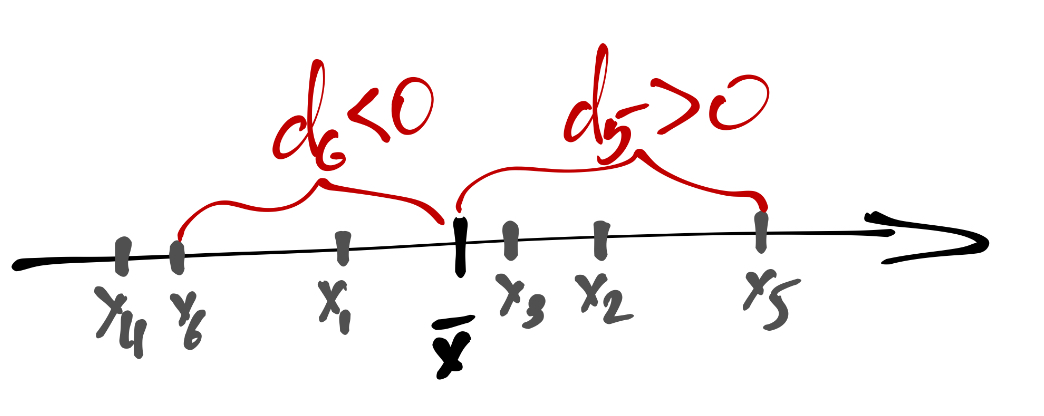 d₆<0 d₅>0
x₄ x₆ x₁ x̄ x₃ x₂ x₅